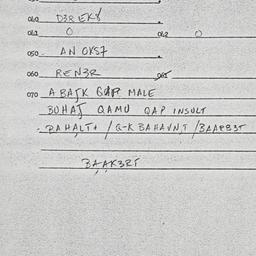 040 D3REK8
041 O 042 O
050 AN OKS7
060 REN3R 065
070 A BAJK GAP MALE
BUHAJ QAMU QAP INSULT
- DAHALT+ / G-K BAHAVNT / BAAPB3T
BAAK3RT